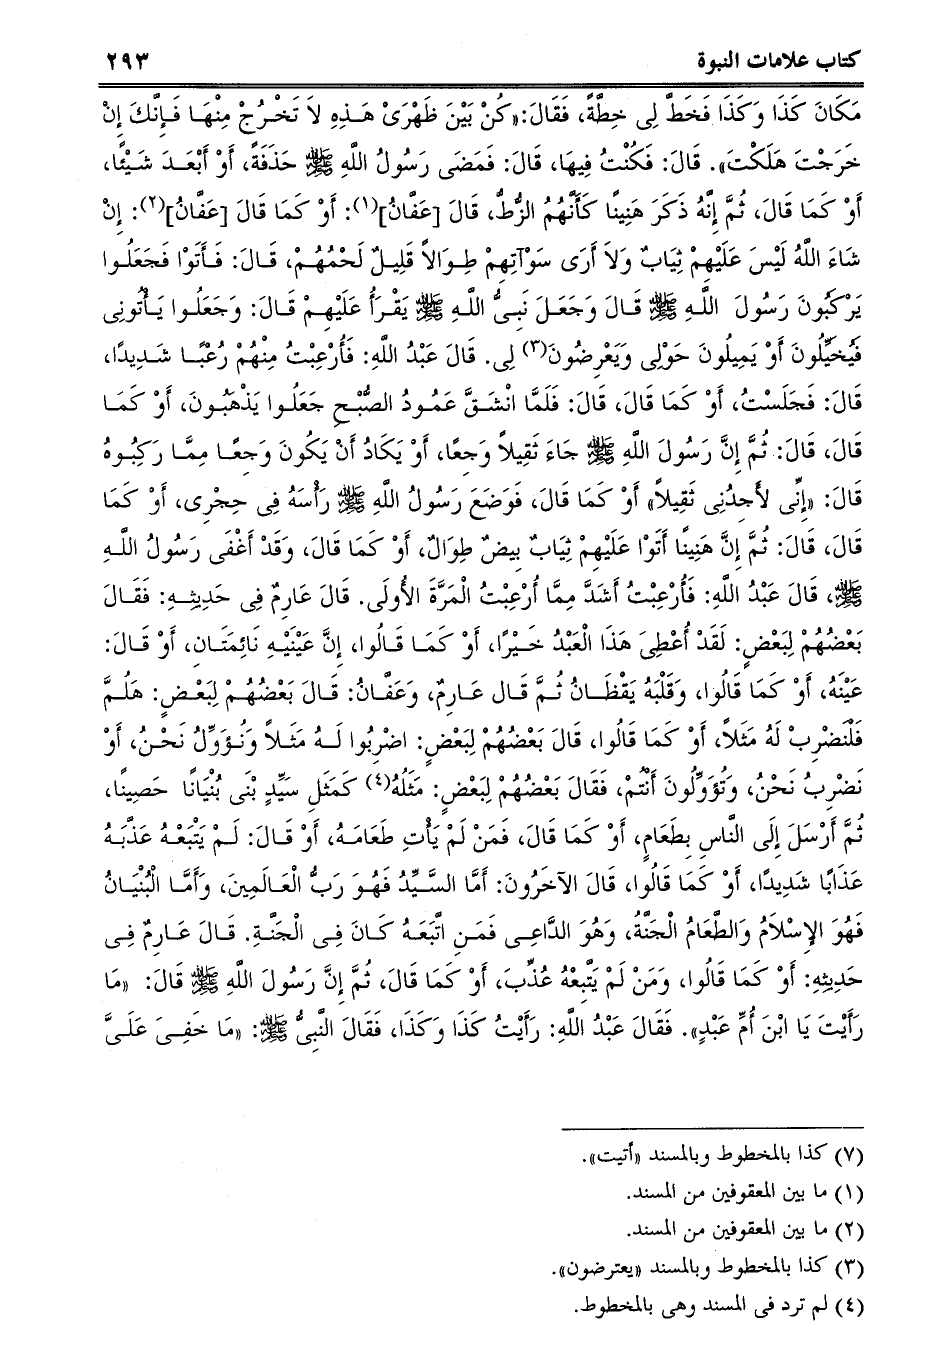 كتاب علامات النبوة ٢٩٣
مَكَانَ كَذَا وَكَذَا فَخَطَّ لِى خِطَّةً، فَقَالَ: «كُنْ بَيْنَ ظَهْرَىْ هَذِهِ لاَ تَخْرُجْ مِنْهَا فَإِنَّكَ إِنْ
خَرَجْتَ هَلَكْتَ». قَالَ: فَكُنْتُ فِيهَا، قَالَ: فَمَضَى رَسُولُ اللَّهِ ﷺ حَذَفَةً، أَوْ أَبْعَدَ شَيْئًا،
أَوْ كَمَا قَالَ، ثُمَّ إِنَّهُ ذَكَرَ هَنِينًا كَأَنَّهُمُ الزُّطُّ، قَالَ [عَفَّانُ](١): أَوْ كَمَا قَالَ [عَفَّانُ](٢): إِنْ
شَاءَ اللَّهُ لَيْسَ عَلَيْهِمْ ثِيَابٌ وَلاَ أَرَى سَوْآتِهِمْ طِوَالاً قَلِيلٌ لَحْمُهُمْ، قَالَ: فَأَتَوْا فَجَعَلُوا
يَرْكَبُونَ رَسُولَ اللَّهِ ﷺ قَالَ وَجَعَلَ نَبِىُّ اللَّهِ ﷺ يَقْرَأُ عَلَيْهِمْ قَالَ: وَجَعَلُوا يَأْتُونِى
فَيُخَيِّلُونَ أَوْ يَمِيلُونَ حَوْلِى وَيَعْرِضُونَ(٣) لِى. قَالَ عَبْدُ اللَّهِ: فَأُرْعِبْتُ مِنْهُمْ رُعْبًا شَدِيدًا،
قَالَ: فَجَلَسْتُ، أَوْ كَمَا قَالَ، قَالَ: فَلَمَّا انْشَقَّ عَمُودُ الصُّبْحِ جَعَلُوا يَذْهَبُونَ، أَوْ كَمَا
قَالَ، قَالَ: ثُمَّ إِنَّ رَسُولَ اللَّهِ ﷺ جَاءَ ثَقِيلاً وَجعًا، أَوْ يَكَادُ أَنْ يَكُونَ وَجعًا مِمَّا رَكِبُوهُ
قَالَ: «إِنِّى لأَجدُنِى ثَقِيلاً» أَوْ كَمَا قَالَ، فَوَضَعَ رَسُولُ اللَّهِ ﷺ رَأْسَهُ فِى حِجْرِى، أَوْ كَمَا
قَالَ، قَالَ: ثُمَّ إِنَّ هَنِينًا أَتَوْا عَلَيْهِمْ ثِيَابٌ بِيضٌ طِوَالٌ، أَوْ كَمَا قَالَ، وَقَدْ أَغْفَى رَسُولُ اللَّهِ
ﷺ، قَالَ عَبْدُ اللَّهِ: فَأُرْعِبْتُ أَشَدَّ مِمَّا أُرْعِبْتُ الْمَرَّةَ الأُولَى. قَالَ عَارِمٌ فِى حَدِيثِهِ: فَقَالَ
بَعْضُهُمْ لِبَعْضٍ: لَقَدْ أُعْطِىَ هَذَا الْعَبْدُ خَيْرًا، أَوْ كَمَا قَالُوا، إِنَّ عَيْنَيْهِ نَائِمَتَانِ، أَوْ قَالَ:
عَيْنَهُ، أَوْ كَمَا قَالُوا، وَقَلْبَهُ يَقْظَانُ ثُمَّ قَالَ عَارِمٌ، وَعَفَّانُ: قَالَ بَعْضُهُمْ لِبَعْضٍ: هَلُمَّ
فَلْنَضْرِبْ لَهُ مَثَلاً، أَوْ كَمَا قَالُوا، قَالَ بَعْضُهُمْ لِبَعْضٍ: اضْرِبُوا لَهُ مَثَلاً وَنُؤَوِّلُ نَحْنُ، أَوْ
نَضْرِبُ نَحْنُ، وَتُؤَوِّلُونَ أَنْتُمْ، فَقَالَ بَعْضُهُمْ لِبَعْضٍ: مَثَلُهُ(٤) كَمَثَلِ سَيِّدٍ بَنَى بُنْيَانًا حَصِينًا،
ثُمَّ أَرْسَلَ إِلَى النَّاسِ بِطَعَامٍ، أَوْ كَمَا قَالَ، فَمَنْ لَمْ يَأْتِ طَعَامَهُ، أَوْ قَالَ: لَمْ يَتْبَعْهُ عَذَّبَهُ
عَذَابًا شَدِيدًا، أَوْ كَمَا قَالُوا، قَالَ الآخَرُونَ: أَمَّا السَّيِّدُ فَهُوَ رَبُّ الْعَالَمِينَ، وَأَمَّا الْبُنْيَانُ
فَهُوَ الإِسْلاَمُ وَالطَّعَامُ الْجَنَّةُ، وَهُوَ الدَّاعِى فَمَنِ اتَّبَعَهُ كَانَ فِى الْجَنَّةِ. قَالَ عَارِمٌ فِى
حَدِيثِهِ: أَوْ كَمَا قَالُوا، وَمَنْ لَمْ يَتَّبِعْهُ عُذِّبَ، أَوْ كَمَا قَالَ، ثُمَّ إِنَّ رَسُولَ اللَّهِ ﷺ قَالَ: «مَا
رَأَيْتَ يَا ابْنَ أُمِّ عَبْدٍ». فَقَالَ عَبْدُ اللَّهِ: رَأَيْتُ كَذَا وَكَذَا، فَقَالَ النَّبِىُّ ﷺ: «مَا خَفِىَ عَلَىَّ
(٧) كذا بالمخطوط وبالمسند «أتيت».
(١) ما بين المعقوفين من المسند.
(٢) ما بين المعقوفين من المسند.
(٣) كذا بالمخطوط وبالمسند «يعترضون».
(٤) لم ترد فى المسند وهى بالمخطوط.